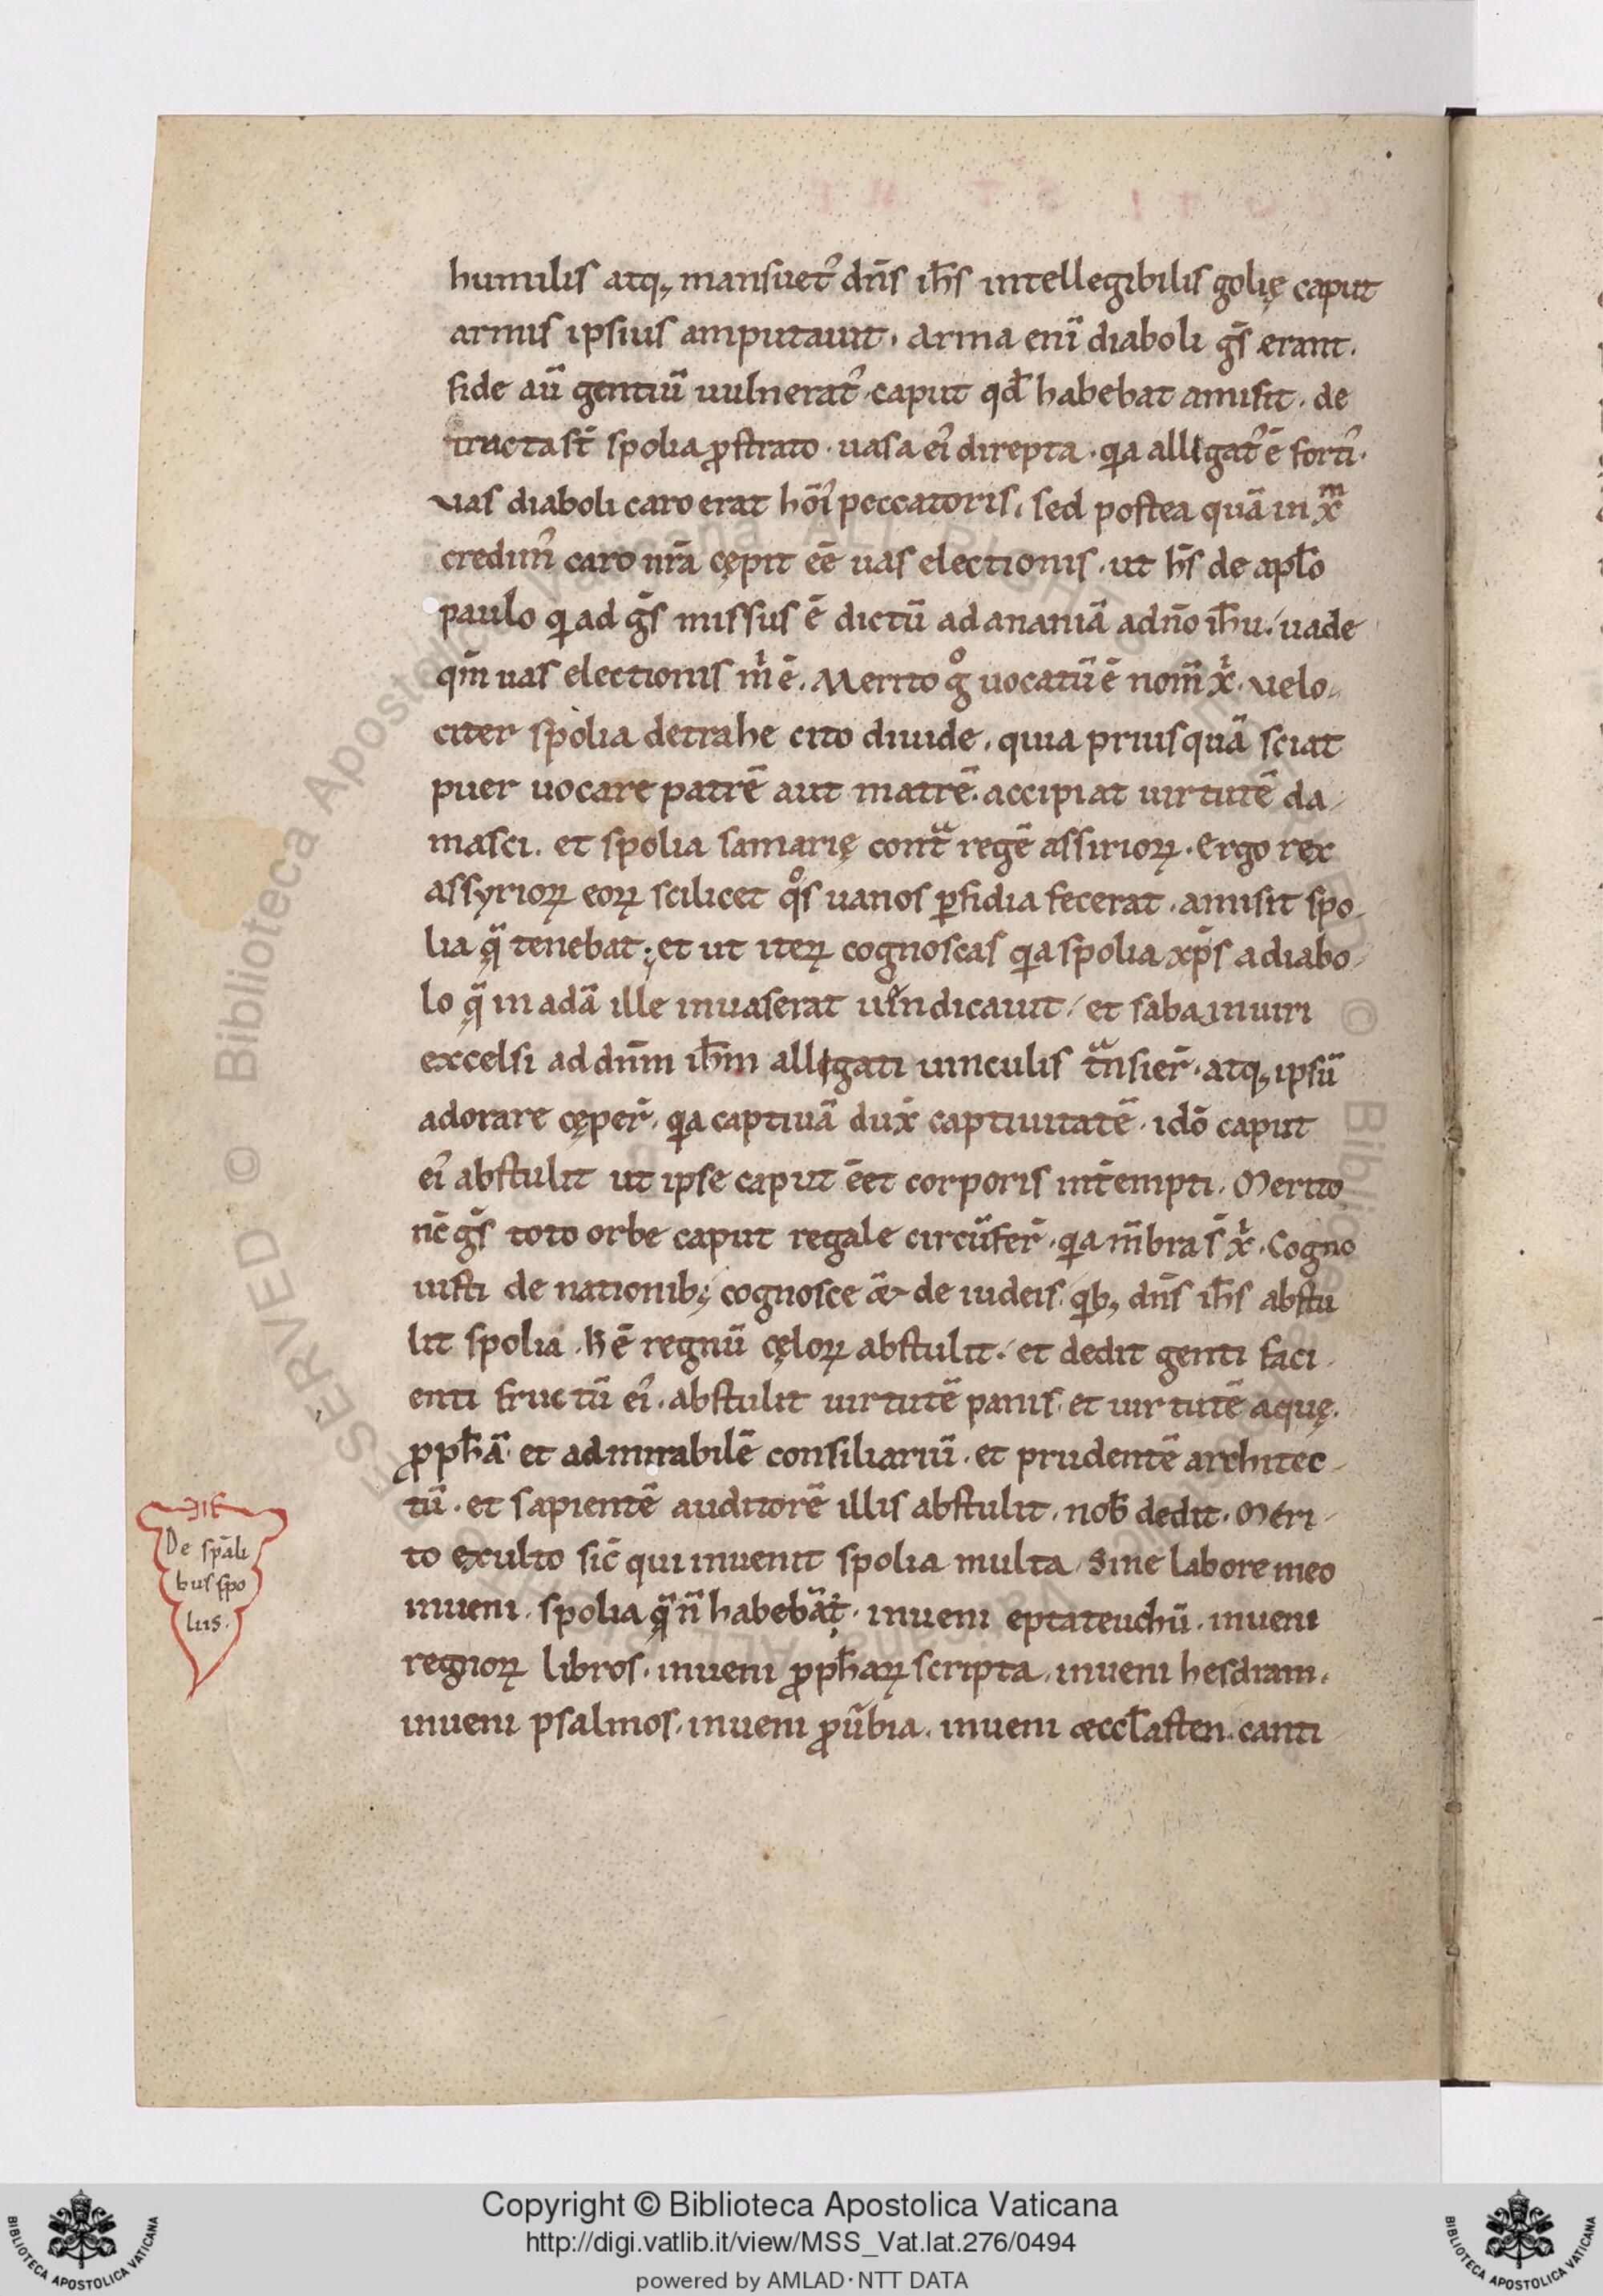 humilis atq; mansuet᾽ dn̄s ih̄s intellegibilis golię caput
armis ipsius amputauit. Arma eni̅ diaboli gs̅ erant.
fide au̅ gentiu̅ uulnerat᾽. caput qd̅ habebat amisit. de
tracta st̅ spolia ꝓstrato. uasa ei᾽ direpta. qia alligat᾽ e̅ forti᾽.
vas diaboli caro erat ho̅i᾽ peccatoris. sed postea qua̅ in xᵐ
credim᾽ caro nr̅a cępit ee̅ uas electionis. ut hs̅ de apl̅o
paulo qi ad gs̅ missus e̅ dictu̅ ad anania̅ a dn̅o ih̅u. uade
qm̅ uas electionis mⁱ e̅. Merito gͦ uocatu̅ e̅ nom̅ xⁱ. velo-
citer spolia detrahe cito diuide. quia priusqua̅ sciat
puer uocare patre̅ aut matre̅. accipiat uirtute̅ da-
masci. et spolia samarię contᵃ rege̅ assirioꝝ. Ergo rex
assyrioꝝ eoꝝ scilicet qͦs uanos ꝑfidia fecerat. amisit spo-
lia qᵃ tenebat; et ut iteꝝ cognoscas qia spolia xp̅s a diabo-
lo qᵃ in ada̅ ille inuaserat uendicauit. et saba inuiri
excelsi ad dn̅m ih̅m alligati uinculis tᵃnsier̅. atq; ipsu̅
adorare cęper̅. qia captiua̅ dux̅ captiuitate̅. ido̅ caput
ei᾽ abstulit ut ipse caput e̅et corporis int̅empti. Merito
nc̅ gs̅ toto orbe caput regale circu̅fer̅. qia m̅bra s̅ xⁱ. Cogno
uisti de nationib; cognosce & de iudeis. qib; dn̅s ih̅s abstu
lit spolia. h̅ e̅ regnu̅ cęloꝝ abstulit. et dedit genti faci-
enti fructu̅ ei᾽. abstulit uirtute̅ panis. et uirtute̅ aquę.
ꝓph̅a̅. et admirabile̅ consiliariu̅. et prudente̅ architec-
tu̅. et sapiente̅ auditore̅ illis abstulit. nob̅ dedit. Meri-
to exulto sic̅ qui inuenit spolia multa. Sine labore meo
inueni. spolia qᵃ n̅ habeba̅t. inueni eptateuchu̅. inueni
regnoꝝ libros. inueni ꝓph̅aꝝ scripta. inueni hesdram.
inueni psalmos. inueni ꝓu̅bia. inueni æccl̅asten. canti
De sp̅ali
bus spo
liis.
Copyright © Biblioteca Apostolica Vaticana
http://digi.vatlib.it/view/MSS_Vat.lat.276/0494
powered by AMLAD·NTT DATA
BIBLIOTECA APOSTOLICA VATICANA
BIBLIOTECA APOSTOLICA VATICANA